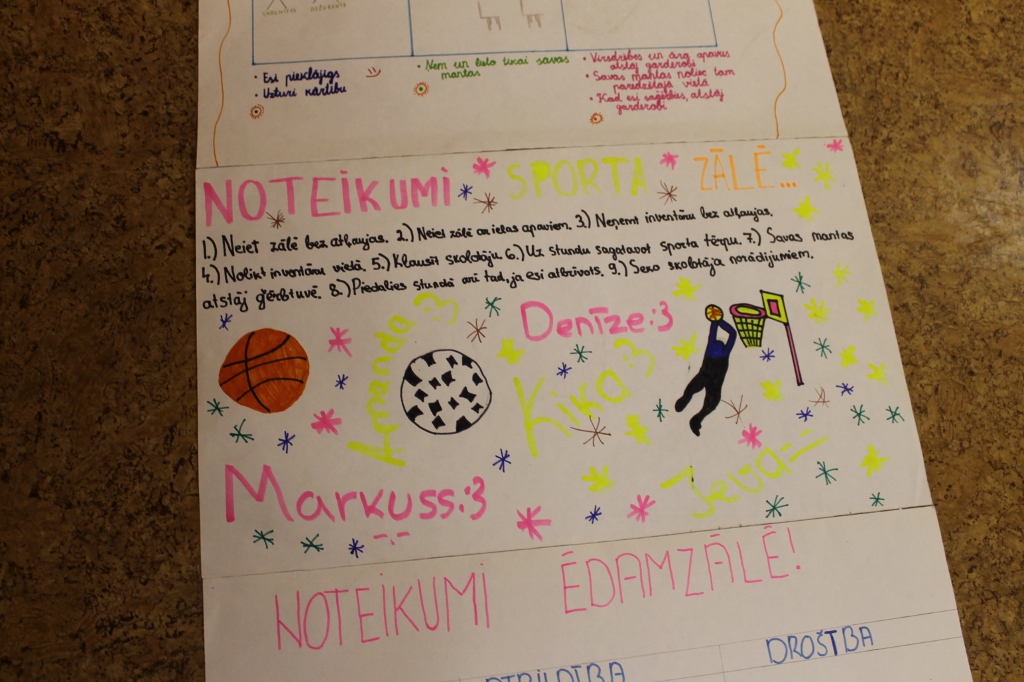 • Esi pieklājīgs
• Uzturi kārtību
• Ņem un lieto tikai savas
mantas
• Virsdrēbes un āra apavus
atstāj garderobē
• Savas mantas noliec tam
paredzētajā vietā
• Kad esi saģērbies, atstāj
garderobi
NOTEIKUMI SPORTA ZĀLĒ...
1.) Neiet zālē bez atļaujas. 2.) Neiet zālē ar ielas apaviem. 3.) Neņemt inventāru bez atļaujas.
4.) Nolikt inventāru vietā. 5.) Klausīt skolotāju. 6.) Uz stundu sagatavot sporta tērpu. 7.) Savas mantas
atstāj ģērbtuvē. 8.) Piedalies stundā arī tad, ja esi atbrīvots. 9.) Seko skolotāja norādījumiem.
Amanda :3
Denīze :3
Kika :3
Markuss :3
Ieva =
NOTEIKUMI ĒDAMZĀLĒ!
ATBILDĪBA
DROŠTBA